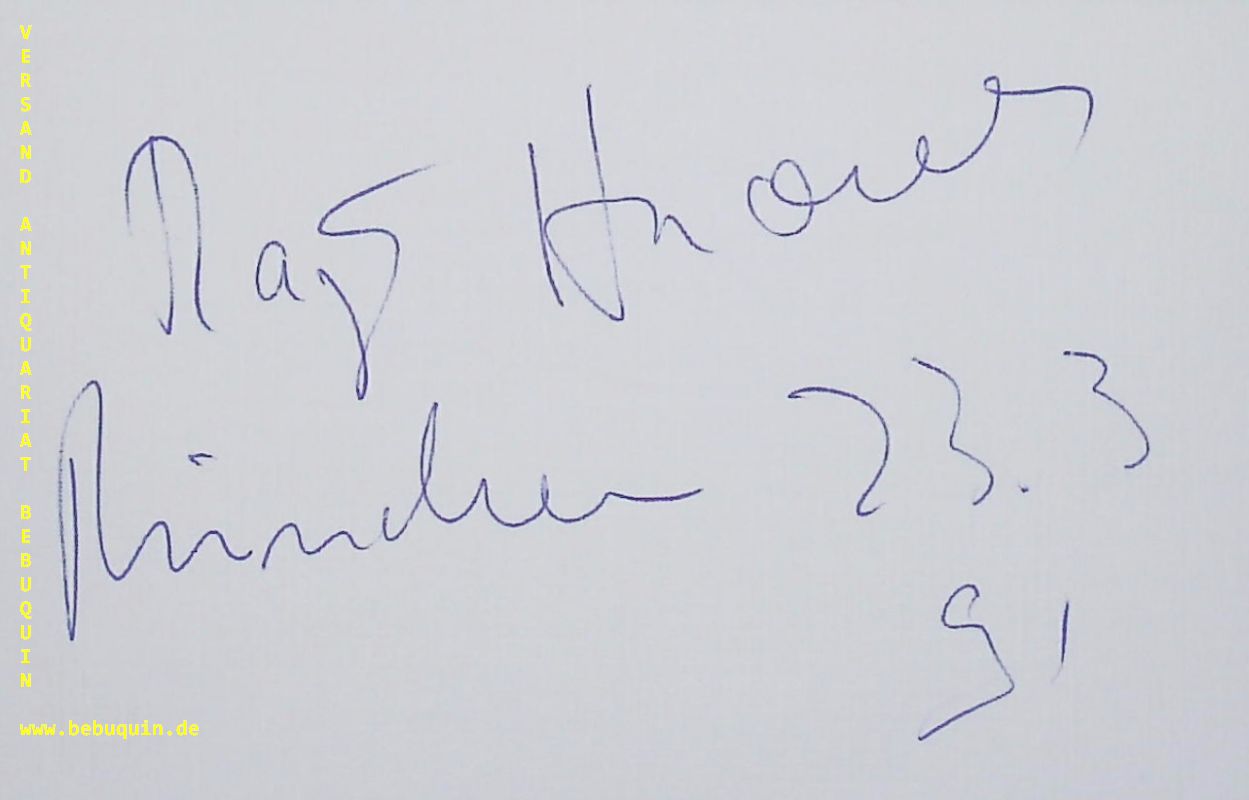 VERSAND ANTIQUARIAT BEBUQUIN
München 23.3
91
www.bebuquin.de